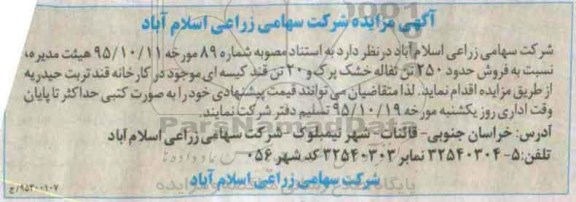 آگهی مزایده شرکت سهامی زراعی اسلام آباد
شرکت سهامی زراعی اسلام آباد در نظر دارد به استناد مصوبه شماره ۸۹ مورخه ۹۵/۱۰/۱۱ هیئت مدیره،
نسبت به فروش حدود ۲۵۰ تن تفاله خشک پرک و ۲۰ تن قند کیسه ای موجود در کارخانه قند تربت حیدریه
از طریق مزایده اقدام نماید. لذا متقاضیان می توانند قیمت پیشنهادی خود را به صورت کتبی حداکثر تا پایان
وقت اداری روز یکشنبه مورخه ۹۵/۱۰/۱۹ تسلیم دفتر شرکت نمایند.
آدرس: خراسان جنوبی- قائنات- شهر نیمبلوک - شرکت سهامی زراعی اسلام آباد
تلفن: ۵-۳۲۵۴۰۳۰۴ نمابر ۳۲۵۴۰۳۰۳ کد شهر ۰۵۶
شرکت سهامی زراعی اسلام آباد
۹۵۲۰۰۱۰۷/ع